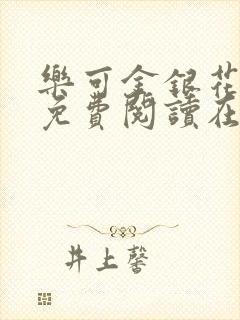 樂可金銀花
免費閱讀在
井上馨